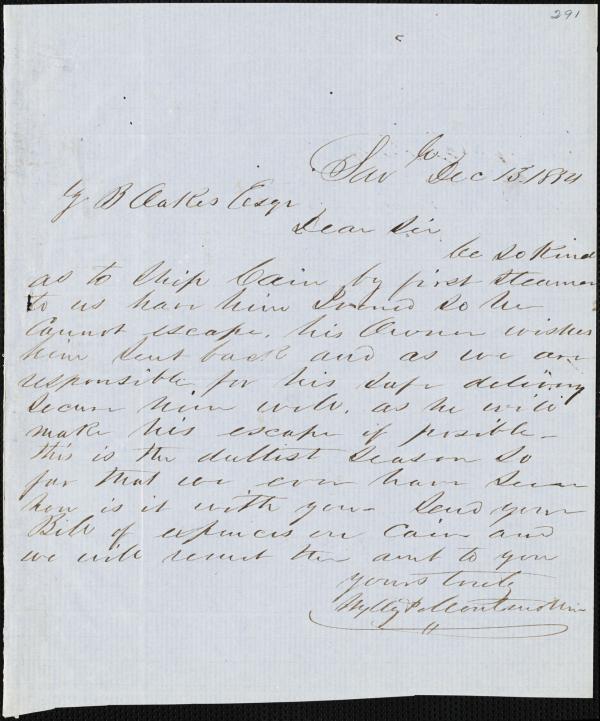 291
Sav Ga Dec 13, 1854
Z B Oakes Esqr
Dear Sir
be so kind
as to Ship Cain by first steamer
to us have him Ironed so he
Cannot escape, his Owner wishes
him sent back and as we are
responsible for his safe delivery
secure him well. as he will
make his escape if posible –
this is the dullist season so
far that we ever have seen
how is it with you – Send your
Bill of expences on Cain and
we will remit the amt to you
yours truly
Wylly & Montmollin